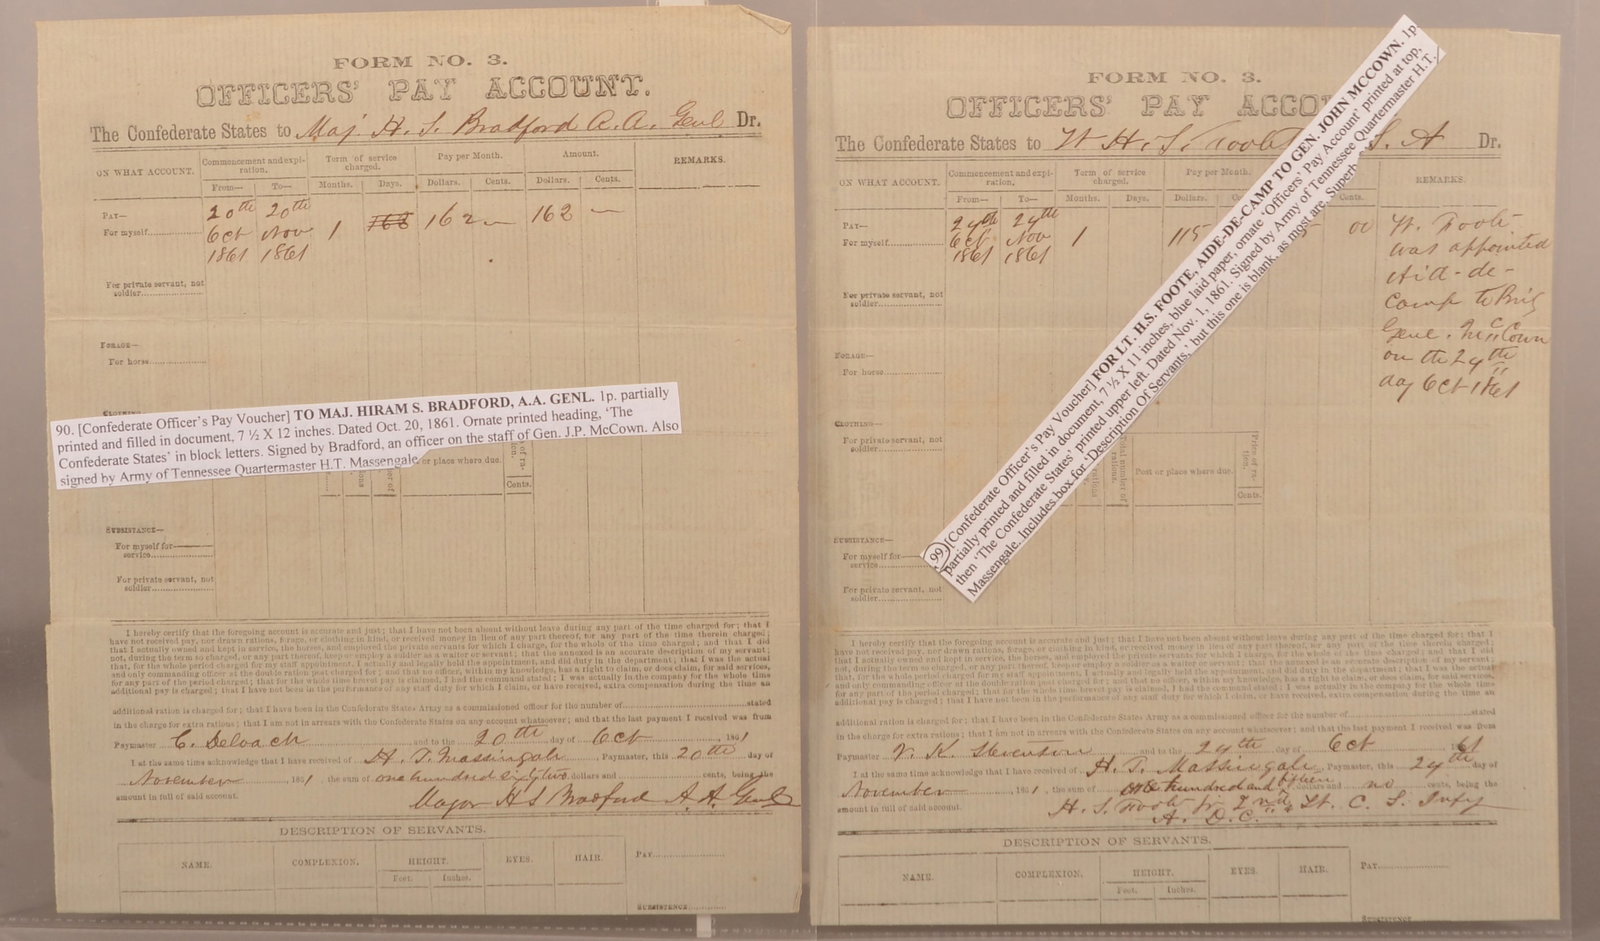 FORM NO. 3.
OFFICERS' PAY ACCOUNT.
The Confederate States to Maj H. S. Bradford A. A. Genl Dr.
ON WHAT ACCOUNT.
Commencement and expiration.
Term of service charged.
Pay per Month.
Amount.
REMARKS.
From— To— Months. Days. Dollars. Cents. Dollars. Cents.
PAY—
For myself
20th 20th
Oct Nov 1 162 — 162 —
1861 1861
For private servant, not soldier
FORAGE—
For horse
90. [Confederate Officer's Pay Voucher] TO MAJ. HIRAM S. BRADFORD, A.A. GENL. 1p. partially
printed and filled in document, 7 ½ X 12 inches. Dated Oct. 20, 1861. Ornate printed heading, 'The
Confederate States' in block letters. Signed by Bradford, an officer on the staff of Gen. J.P. McCown. Also
signed by Army of Tennessee Quartermaster H.T. Massengale.
or place where due.
Cents.
SUBSISTANCE—
For myself for
service
For private servant, not
soldier
I hereby certify that the foregoing account is accurate and just; that I have not been absent without leave during any part of the time charged for; that I
have not received pay, nor drawn rations, forage, or clothing in kind, or received money in lieu of any part thereof, for any part of the time therein charged;
that I actually owned and kept in service, the horses, and employed the private servants for which I charge, for the whole of the time charged; and that I did
not, during the term so charged, or any part thereof, keep or employ a soldier as a waiter or servant; that the annexed is an accurate description of my servant;
that, for the whole period charged for my staff appointment, I actually and legally held the appointment, and did duty in the department; that I was the actual
and only commanding officer at the double ration post charged for; and that no officer, within my knowledge, has a right to claim, or does claim, for said services,
for any part of the period charged; that for the whole time brevet pay is claimed, I had the command stated; I was actually in the company for the whole time
additional pay is charged; that I have not been in the performance of any staff duty for which I claim, or have received, extra compensation during the time an
additional ration is charged for; that I have been in the Confederate States Army as a commissioned officer for the number of stated
in the charge for extra rations; that I am not in arrears with the Confederate States on any account whatsoever; and that the last payment I received was from
Paymaster C. Deloach and to the 20th day of Oct, 1861
I at the same time acknowledge that I have received of H. T. Massingale, Paymaster, this 20th day of
November 1861, the sum of one hundred sixty two dollars and cents, being the
amount in full of said account. Major H S Bradford A. A. Genl
DESCRIPTION OF SERVANTS.
NAME. COMPLEXION. HEIGHT. EYES. HAIR. PAY
Feet. Inches.
SUBSISTENCE
FORM NO. 3.
OFFICERS' PAY ACCOU
The Confederate States to H. S. Foote S. A Dr.
ON WHAT ACCOUNT.
Commencement and expiration.
Term of service charged.
Pay per Month.
REMARKS.
From— To— Months. Days. Dollars. Cents.
PAY—
For myself
24th 24th
Oct Nov 1 115 00
1861 1861
Lt. Foote
was appointed
Aid-de-
Camp to Brig
Genl. McCown
on the 24th
day Oct 1861
For private servant, not
soldier
FORAGE—
For horse
CLOTHING—
For private servant, not
soldier
Total number of rations.
Post or place where due.
Price of ration.
Cents.
99. [Confederate Officer's Pay Voucher] FOR LT. H.S. FOOTE, AIDE-DE-CAMP TO GEN. JOHN MCCOWN. 1p
partially printed and filled in document, 7 ½ X 11 inches, blue laid paper, ornate 'Officers' Pay Account' printed at top,
then 'The Confederate States' printed upper left. Dated Nov. 1, 1861. Signed by Army of Tennessee Quartermaster H.T.
Massengale. Includes box for 'Description Of Servants,' but this one is blank, as most are. Superb
SUBSISTANCE—
For myself for
service
For private servant, not
soldier
I hereby certify that the foregoing account is accurate and just; that I have not been absent without leave during any part of the time charged for; that I
have not received pay, nor drawn rations, forage, or clothing in kind, or received money in lieu of any part thereof, for any part of the time therein charged;
that I actually owned and kept in service, the horses, and employed the private servants for which I charge, for the whole of the time charged; and that I did
not, during the term so charged, or any part thereof, keep or employ a soldier as a waiter or servant; that the annexed is an accurate description of my servant;
that, for the whole period charged for my staff appointment, I actually and legally held the appointment, and did duty in the department; that I was the actual
and only commanding officer at the double ration post charged for; and that no officer, within my knowledge, has a right to claim, or does claim, for said services,
for any part of the period charged; that for the whole time brevet pay is claimed, I had the command stated; that I was actually in the company for the whole time
additional pay is charged; that I have not been in the performance of any staff duty for which I claim, or have received, extra compensation during the time an
additional ration is charged for; that I have been in the Confederate States Army as a commissioned officer for the number of stated
in the charge for extra rations; that I am not in arrears with the Confederate States on any account whatsoever; and that the last payment I received was from
Paymaster V. K. Stevenson and to the 24th day of Oct 1861
I at the same time acknowledge that I have received of H. T. Massingale, Paymaster, this 24th day of
November, 1861, the sum of one hundred and fifteen dollars and no cents, being the
amount in full of said account. H. S. Foote Jr 2nd Lt. C. S. Infy
A. D. C.
DESCRIPTION OF SERVANTS.
NAME. COMPLEXION. HEIGHT. EYES. HAIR. PAY
Feet. Inches.
SUBSISTENCE